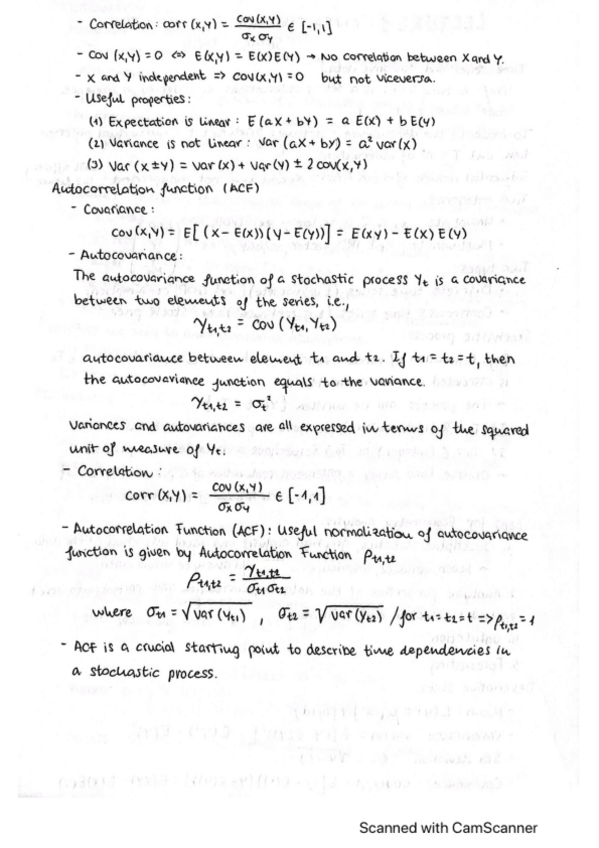 - Correlation: corr(x,y) = cov(x,y) / σx σy ∈ [-1,1]
- Cov (x,y) = 0 ⇔ E(x,y) = E(x)E(y) → No correlation between X and Y.
- X and Y independent ⇒ cov(x,y) = 0 but not viceversa.
- Useful properties:
(1) Expectation is linear: E(aX + bY) = a E(x) + b E(y)
(2) Variance is not linear: Var(aX + by) = a² var(x)
(3) Var (X ± Y) = var(x) + var(y) ± 2 cov(x,y)
Autocorrelation function (ACF)
- Covariance:
cov(x,y) = E[(X - E(x))(y - E(y))] = E(xy) - E(x) E(y)
- Autocovariance:
The autocovariance function of a stochastic process Yt is a covariance
between two elements of the series, i.e.,
γt1,t2 = cov (Yt1, Yt2)
autocovariance between element t1 and t2. If t1 = t2 = t, then
the autocovariance function equals to the variance.
γt1,t2 = σt²
Variances and autovariances are all expressed in terms of the squared
unit of measure of Yt.
- Correlation:
corr(x,y) = cov(x,y) / σx σy ∈ [-1,1]
- Autocorrelation Function (ACF): Useful normalization of autocovariance
function is given by Autocorrelation Function ρt1,t2
ρt1,t2 = γt1,t2 / σt1 σt2
where σt1 = √var(Yt1), σt2 = √var(Yt2) / for t1=t2=t => ρt1,t2 = 1
- ACF is a crucial starting point to describe time dependencies in
a stochastic process.
Scanned with CamScanner